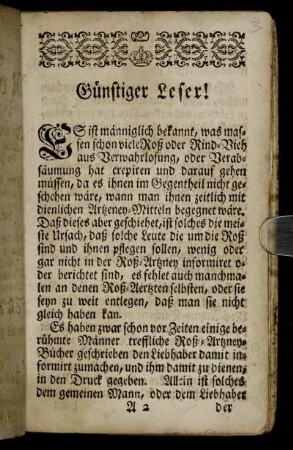 Günstiger Leser!
ES ist männiglich bekannt, was mas-
sen schon viele Roß oder Rind-Vieh
aus Verwahrlosung, oder Verab-
säumung hat crepiren und darauf gehen
müssen, da es ihnen im Gegentheil nicht ge-
schehen wäre, wann man ihnen zeitlich mit
dienlichen Artzeney-Mitteln begegnet wäre.
Daß dieses aber geschiehet, ist solches die mei-
ste Ursach, daß solche Leute die um die Roß
sind und ihnen pflegen sollen, wenig oder
gar nicht in der Roß-Artzney informiret o-
der berichtet sind, es fehlet auch manchma-
len an denen Roß-Aertzten selbsten, oder sie
seyn zu weit entlegen, daß man sie nicht
gleich haben kan.
Es haben zwar schon vor Zeiten einige be-
rühmte Männer treffliche Roß-Artzney-
Bücher geschrieben den Liebhaber damit in-
formirt zumachen, und ihm damit zu dienen,
in den Druck gegeben. Allein ist solches
dem gemeinen Mann, oder dem Liebhaber
A 2 der